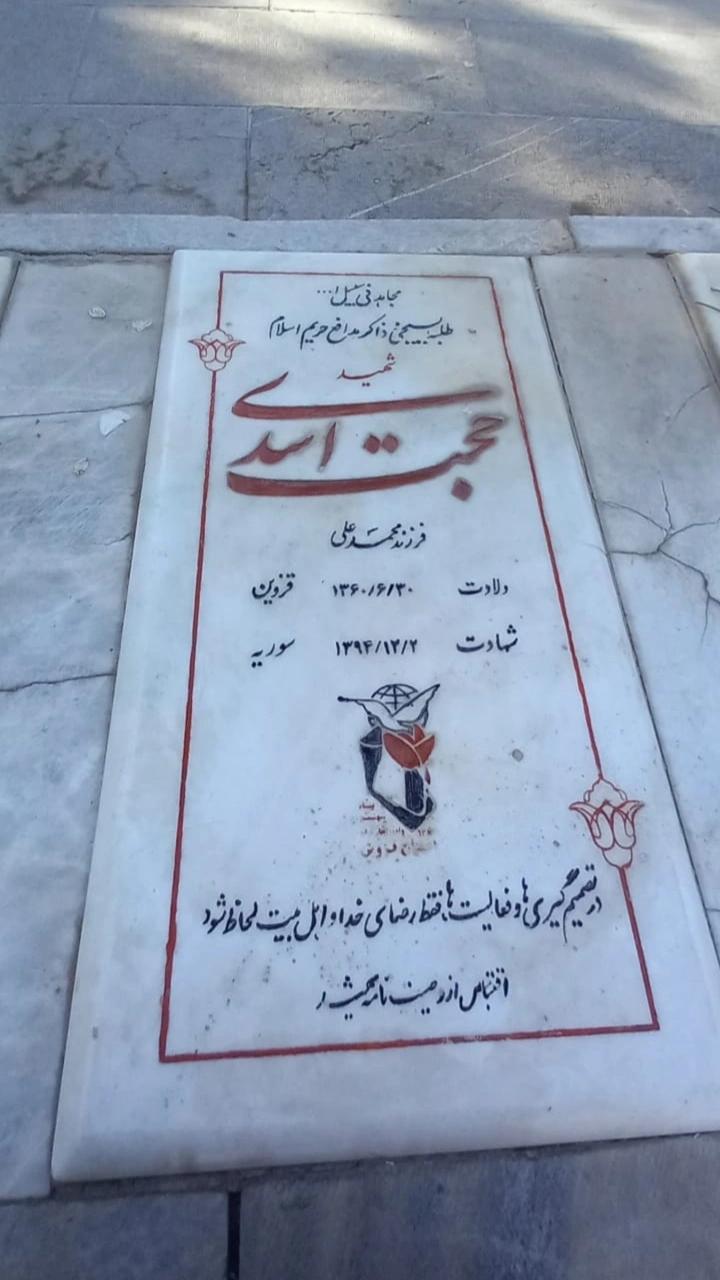 مجاهد فی سبیل ا...
طلبه بسیجی ذاکر مدافع حریم اسلام
شهید
حجت اسدی
فرزند محمدعلی
ولادت ۱۳۶۰/۶/۳۰ قزوین
شهادت ۱۳۹۴/۱۲/۲ سوریه
قزوین
در تصمیم‌گیری‌ها و فعالیت‌ها فقط رضای خدا و اهل بیت لحاظ شود
اقتباس از وصیت نامه شهید